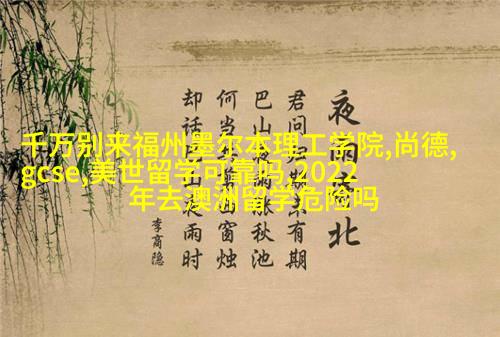 千万别来福州墨尔本理工学院,尚德,
gcse,美世留学可靠吗,2022
年去澳洲留学危险吗
夜雨北
君问归有期
巴山涨秋池
何当窗烛
却话夜雨时
李商隐